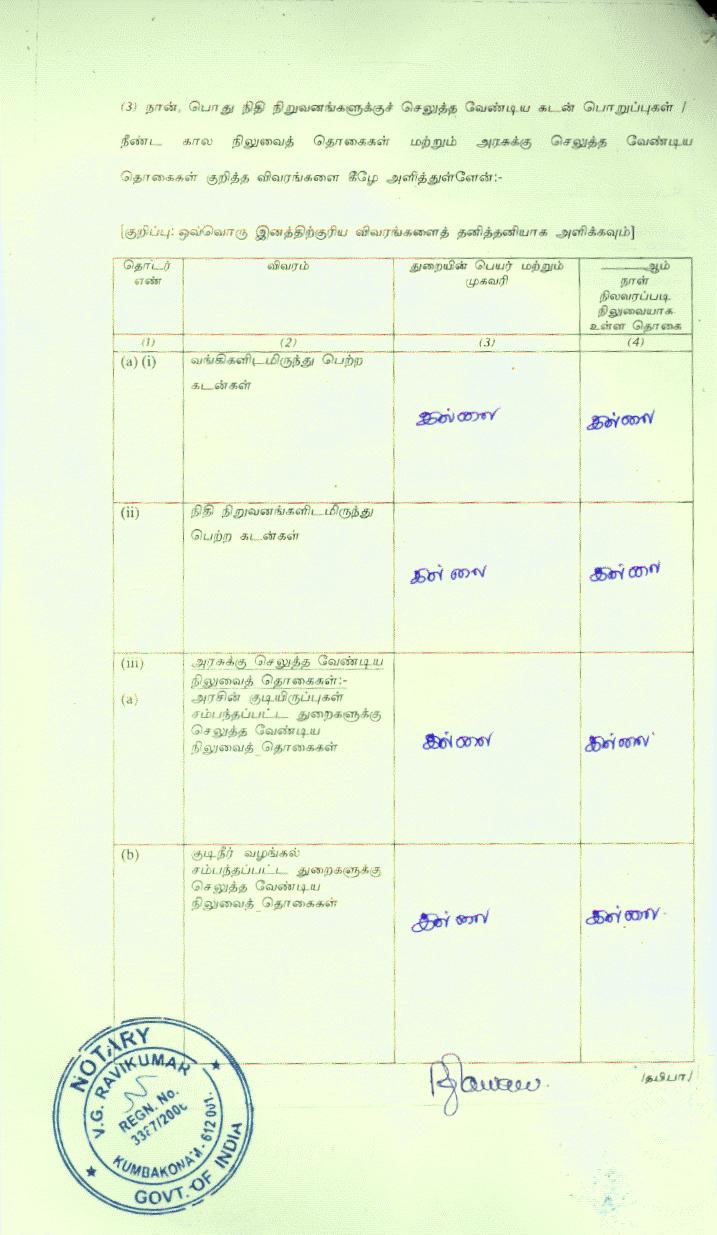 (3) நான், பொது நிதி நிறுவனங்களுக்குச் செலுத்த வேண்டிய கடன் பொறுப்புகள் /
நீண்ட கால நிலுவைத் தொகைகள் மற்றும் அரசுக்கு செலுத்த வேண்டிய
தொகைகள் குறித்த விவரங்களை கீழே அளித்துள்ளேன்:-
[குறிப்பு: ஒவ்வொரு இனத்திற்குரிய விவரங்களைத் தனித்தனியாக அளிக்கவும்]
தொடர் எண்
விவரம்
துறையின் பெயர் மற்றும்
முகவரி
______ஆம்
நாள்
நிலவரப்படி
நிலுவையாக
உள்ள தொகை
(1) (2) (3) (4)
(a) (i) வங்கிகளிடமிருந்து பெற்ற
கடன்கள்
இல்லை இல்லை
(ii) நிதி நிறுவனங்களிடமிருந்து
பெற்ற கடன்கள்
இல்லை இல்லை
(iii) அரசுக்கு செலுத்த வேண்டிய
நிலுவைத் தொகைகள்:-
(a) அரசின் குடியிருப்புகள்
சம்பந்தப்பட்ட துறைகளுக்கு
செலுத்த வேண்டிய
நிலுவைத் தொகைகள்
இல்லை இல்லை
(b) குடிநீர் வழங்கல்
சம்பந்தப்பட்ட துறைகளுக்கு
செலுத்த வேண்டிய
நிலுவைத் தொகைகள்
இல்லை இல்லை
/தபிபா/
NOTARY
V.G. RAVIKUMAR
REGN. No.
KUMBAKONAM - 612 001.
GOVT. OF INDIA